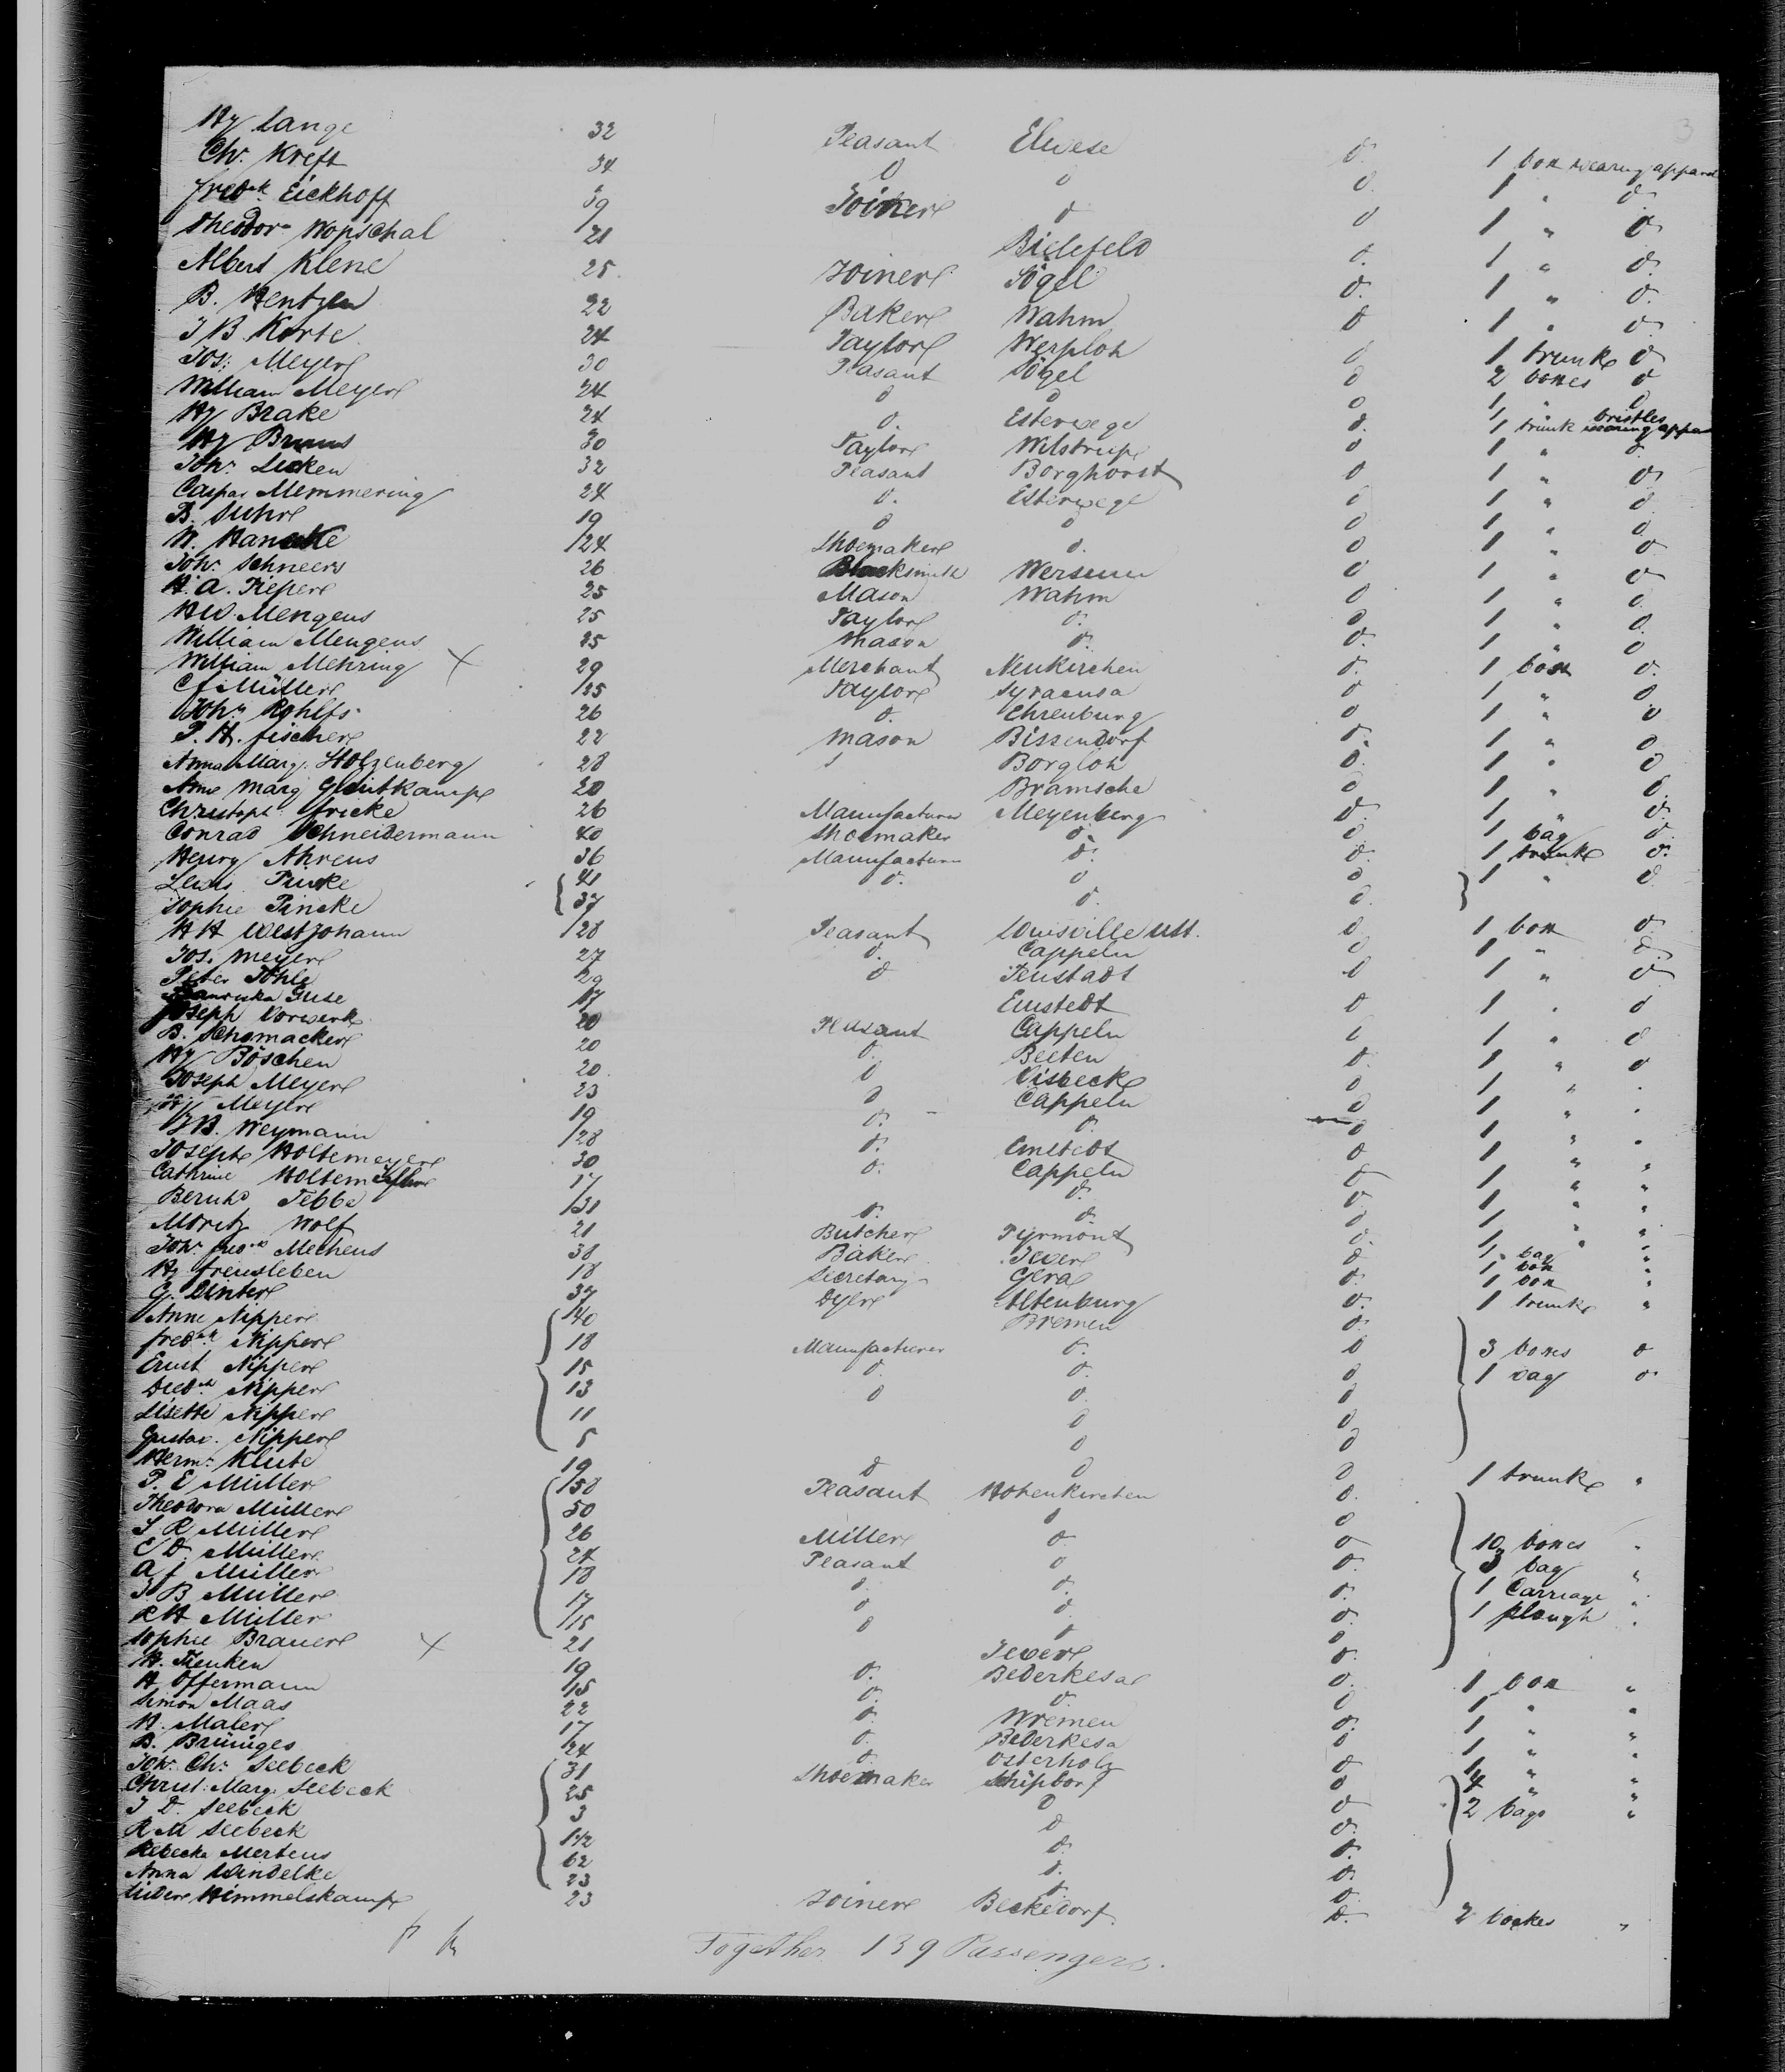 3
Hy Lange 32 Peasant Elvese d. 1 box wearing apparel
Chr. Kreft 34 d d d. 1 " d
Fredk. Eickhoff 39 Joiner d d 1 " d
Theodor Wopschal 21 Bielefeld d. 1 " d.
Albert Klene 25 Joiner Sögel d. 1 " d.
B. Hentzen 22 Baker Wahm d 1 " d
J B Korte 24 Taylor Werploh d 1 trunk d
Jos: Meyer 30 Peasant Sögel d 2 boxes d
William Meyer 24 d d d 1 " d
Hy Brake 24 d. Esterwege d. 1 trunk bristles wearing appa
Hy Bruns 30 Taylor Wilstrup d 1 " d.
Joh. Lücken 32 Peasant Borghorst d 1 " d
Caspar Memmering 24 d. Esterwege d 1 " d
B. Suhr 19 d d d 1 " d
W. Hanecke 24 Shoemaker d. d 1 " d
Joh. Schneers 26 Blacksmith d 1 " d
H. A. Pieper 25 Mason Wahm d 1 " d
HW. Mengens 25 Taylor d. d 1 " d
William Mengens 25 Mason d. d. 1 " d
William Mehring X 29 Merchant Neukirchen d. 1 box d.
C f Müller 25 Taylor Syracusa d 1 " d
Joh. Rohlfs 26 d. Ehrenburg d 1 " d
P. H. Fischer 22 Mason Bissendorf d. 1 " d
Anna Marg. Holzenberg 28 Borgloh d. 1 " d
Anne Marg 20 Bramsche d 1 " d
Christoph Fricke 26 Manufacturer Meyenburg d. 1 " d.
Conrad Schneidermann 40 Shoemaker d. d. 1 bag d.
Henry Ahrens 36 Manufacturer d. d. 1 trunk d.
Lewis Pincke 41 d. d d 1 " d
Sophie Pincke 37 d. d.
H H Westjohann 28 Peasant Louisville USt. d. 1 box d.
Jos. Meyer 27 d. Cappeln d 1 " d.
Peter 29 d d 1 " d
Guse 17 Emstedt d 1 " d
Joseph Vorwerk 20 Peasant Cappeln d 1 " d
B. Schomacker 20 d. Beeten d. 1 " d
Hy Böschen 20 d Visbeck d 1 "
Joseph Meyer 23 d Cappeln d 1 "
Hy Meyer 19 d. d. d 1 "
J B. Weymann 28 d. Emstedt d 1 "
Joseph Holtemeyer 30 d. Cappeln d 1 "
Cathrine 17 d. d 1 "
Bernhd Tebbe 31 d. d. d 1 "
Moritz Wolf 21 Butcher Pyrmont d. 1 bag "
Joh. Fredk Mechens 38 Baker Jever d 1 box "
Hy Freusleben 18 Secretary Gera d. 1 box "
G. Winter 37 Dyer Altenburg d. 1 trunk "
Anne Nipper 40 Bremen d.
Fredk Nipper 18 Manufacturer d. d 3 boxes d
Ernst Nipper 15 d. d. d 1 bag d.
Dledk Nipper 13 d d. d
Lisette Nipper 11 d d
Gustav. Nipper 5 d d
Herm. Klute 19 d d d 1 trunk "
P. E Müller 58 Peasant Hohenkirchen d.
Theodora Müller 50 d d
J R Müller 26 Miller d. d 10 boxes "
C D. Müller 24 Peasant d d. 3 bag "
A f Müller 18 d. d. d. 1 Carriage "
J B Müller 17 d d. d. 1 plough "
R H Müller 15 d d d
Sophie Brauer X 21 Jever d.
H. 19 d. Bederkesa d. 1 box "
H Offermann 15 d. d. d 1 " "
Simon Maas 22 d. Wremen d. 1 " "
H. Maler 17 d. Bederkesa d 1 " "
B. Brüniges 24 d. Osterholz d 1 " "
Joh. Chr. Seebeck 31 Shoemaker Schipdorf d 4 "
Christ. Marg. Seebeck 25 d d 2 bags "
J D. Seebeck 3 d d.
R M Seebeck 1 1/2 d. d.
Rebecka Mertens 62 d. d.
Anna Windelke 23 d. d.
Lüder Himmelskamp 23 Joiner Beckedorf d. 2 boxes "
Together 139 Passengers.